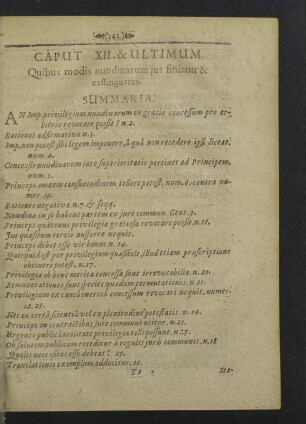 (342)
CAPUT XII. & ULTIMUM.
Quibus modis nundinarum jus finiatur &
exstinguatur.
SUMMARIA.
AN Imp. privilegium nundinarum ex gratia concessum pro ar-
bitrio revocare possit? n. 2.
Rationes adfirmativæ n. 3.
Imp. non potest sibi legem imponere, à quâ non recedere ipsi liceat,
num. 4.
Concessio nundinarum jure superioritatis pertinet ad Principem,
num. 5.
Princeps omnem consuetudinem tollere potest, num. 6. contra nu-
mer. 19.
Rationes negativæ n. 7. & seqq.
Nundinæ in se habent partem ex jure commun. Gent. 9.
Princeps quatenus privilegia gratiosa revocare possit. n. 11.
Jus quæsitum tertio auferre nequit.
Princeps debet esse vir bonus n. 14.
Quicquid est per privilegium quæsibile, illud etiam præscriptione
obtineri potest, n. 17.
Privilegia ob bene merita concessa sunt irrevocabilia. n. 20.
Remunerationes sunt species quædam permutationis. n. 21.
Privilegium ex causâ mercis concessum revocari nequit, numeri
22. 23.
Nec ex certâ scientiâ vel ex plenitudine potestatis. n. 24.
Princeps in contractibus jure communi utitur. n. 25.
Urgente publicâ utilitate privilegia tolli possunt. n. 27.
Ob salutem publicam receditur à regulis juris communis. n. 28
Qualis necessitas esse debeat? 29.
Translationis exemplum adducitur. 30.
Tt